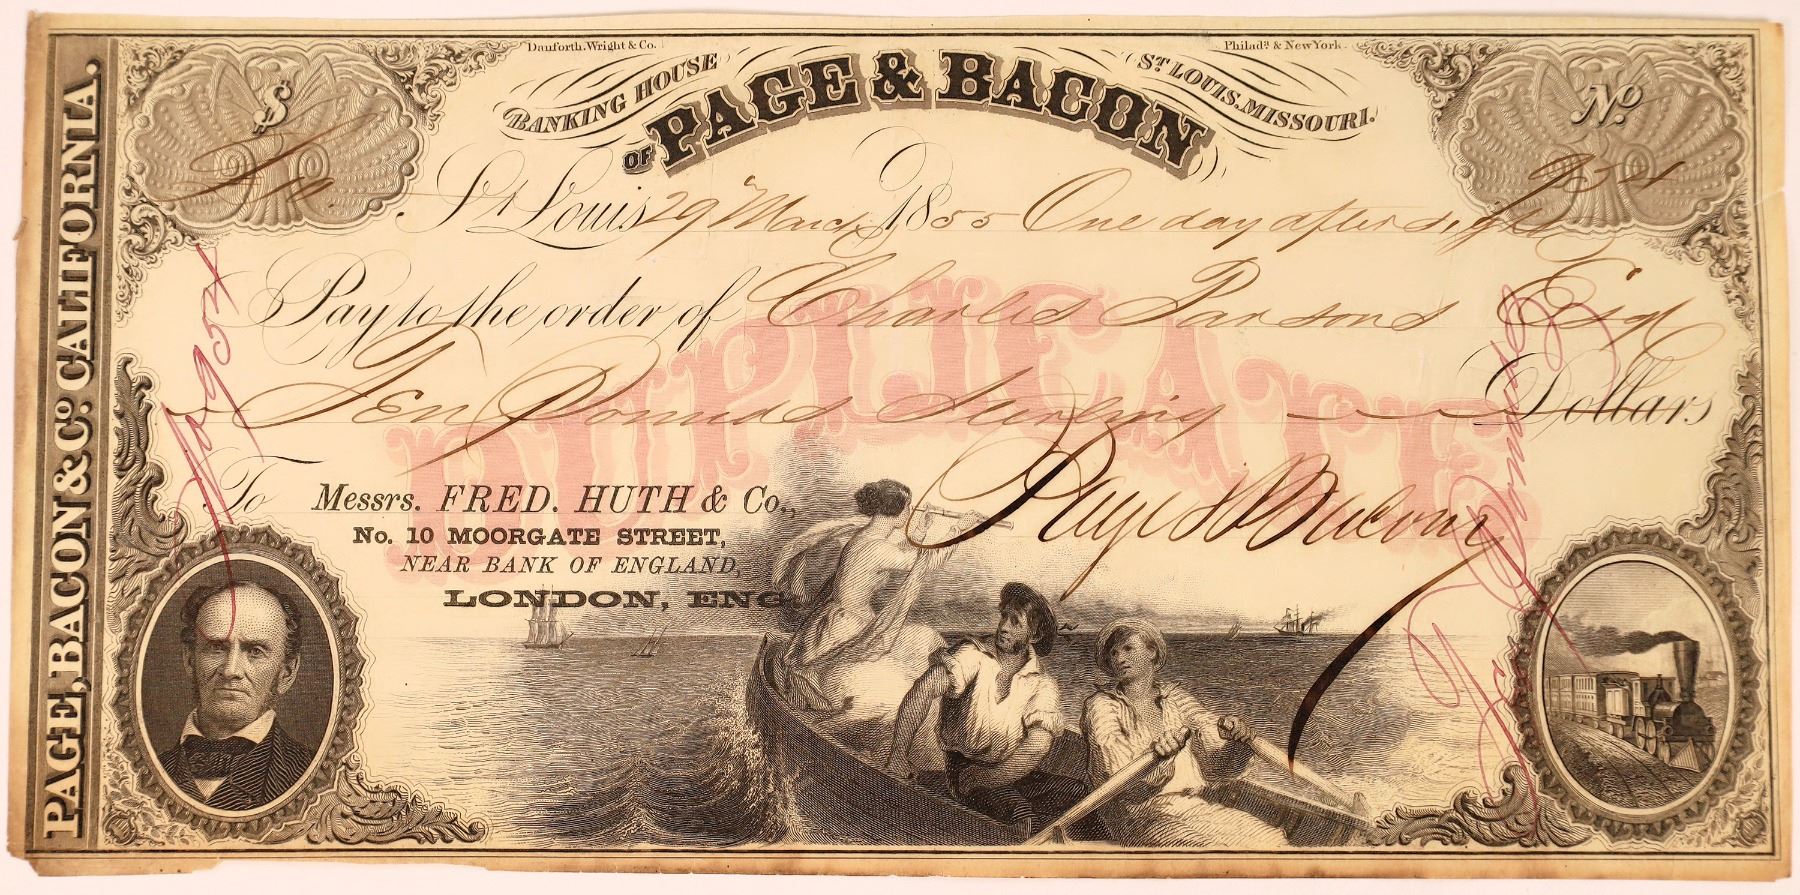 Danforth. Wright & Co.
Philada. & New York.
BANKING HOUSE
OF PAGE & BACON
ST. LOUIS. MISSOURI.
PAGE, BACON & CO. CALIFORNIA.
$
No
St Louis 29" March 1855 One day after sight
Pay to the order of Charles Parsons Esq
Ten Pounds Sterling Dollars
DUPLICATE
To Messrs. FRED. HUTH & Co.,
No. 10 MOORGATE STREET,
NEAR BANK OF ENGLAND,
LONDON, ENG.
Page & Bacon